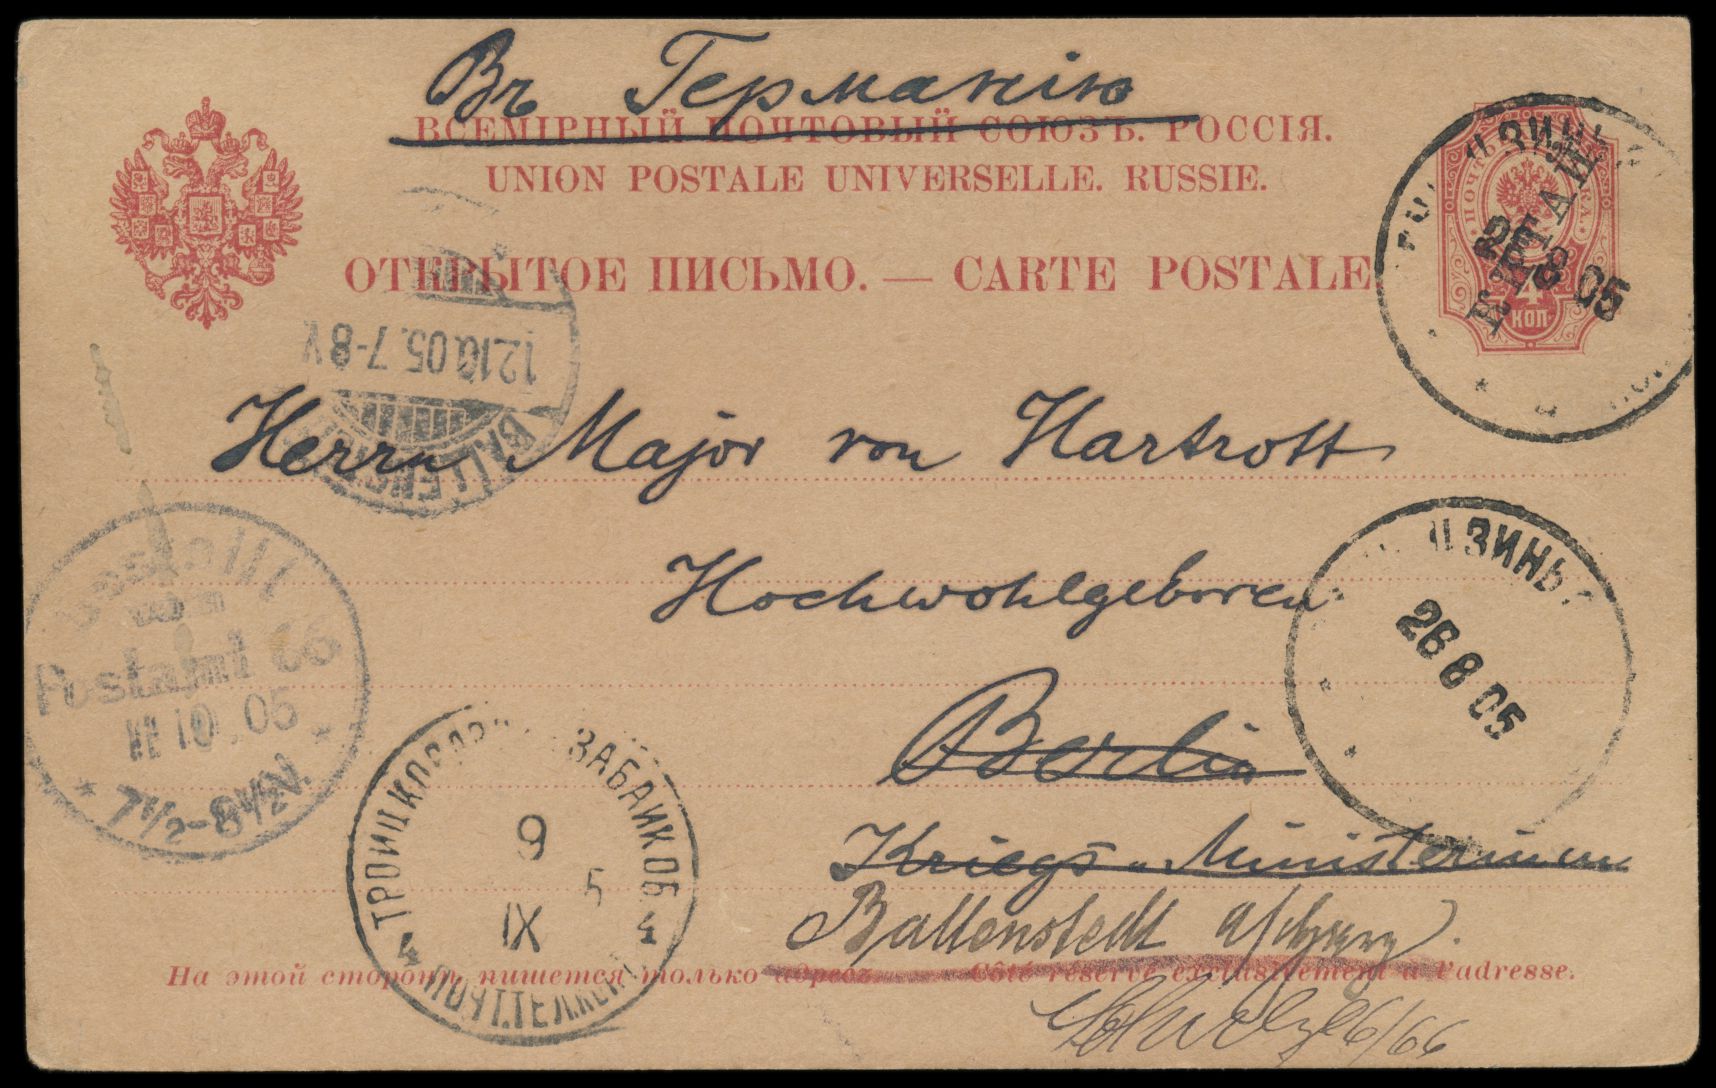 Въ Германію
ВСЕМІРНЫЙ ПОЧТОВЫЙ СОЮЗЪ. РОССІЯ.
UNION POSTALE UNIVERSELLE. RUSSIE.
ОТКРЫТОЕ ПИСЬМО. — CARTE POSTALE
КИТАЙ
4
КОП
26 8 05
12.10.05.7-8V
BALLENSTEDT
Herrn Major von Hartrott
Hochwohlgeboren
Berlin
Kriegs-Ministerium
Ballenstedt a/
ЗИНЬ
26 8 05
Bestellt
vom
Postamt 66
11 10. 05
7½-8½N.
ТРОИЦКОСАВ ЗАБАЙКОБ.
9
IX
5
4 ПОЧТ.ТЕЛ.КОН 4
На этой сторонѣ пишется только адресъ. Côté réservé exclusivement à l'adresse.